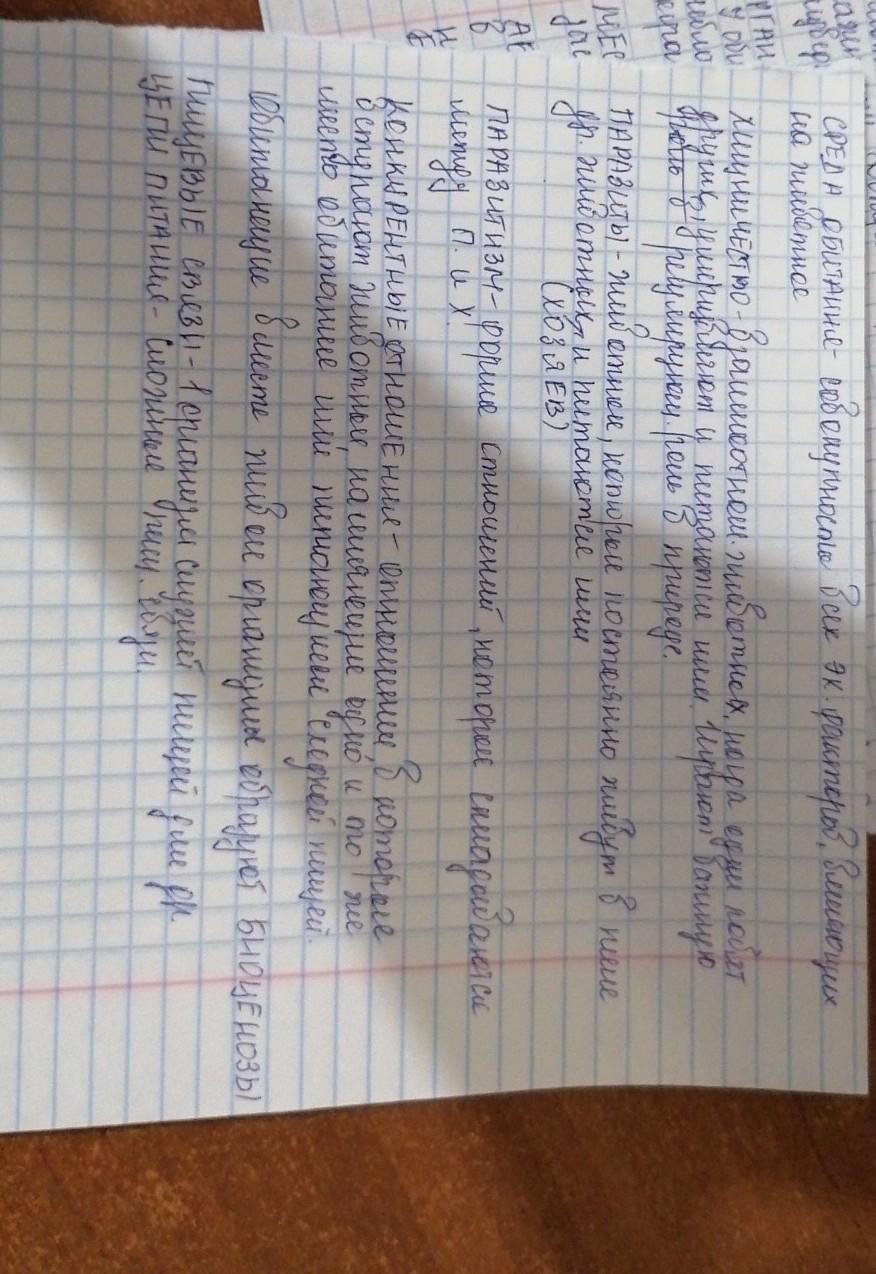 СРЕДА ОБИТАНИЕ - совокупность всех эк. факторов, влияющих
на животное
ХИЩНИЧЕСТВО - взаимоотнош. животных, когда одни ловят
других, умерщвляют и питаются ими. Играют важную
роль в регулирующ. роль в природе.
ПАРАЗИТЫ - животные, которые постоянно живут в теле
др. животных и питаются ими
(ХОЗЯЕВ)
ПАРАЗИТИЗМ - форма отношений, которые складываются
между П. и Х.
КОНКУРЕНТНЫЕ ОТНОШЕНИЯ - отношения, в которые
вступают животные, населяющие одно и то же
место обитание или питающиеся сходной пищей.
Обитающие вместе живые организмы образуют БИОЦЕНОЗЫ
ПИЩЕВЫЕ связи - 1 организм служит пищей для др.
ЦЕПИ ПИТАНИЯ - сложные пищ. связи.